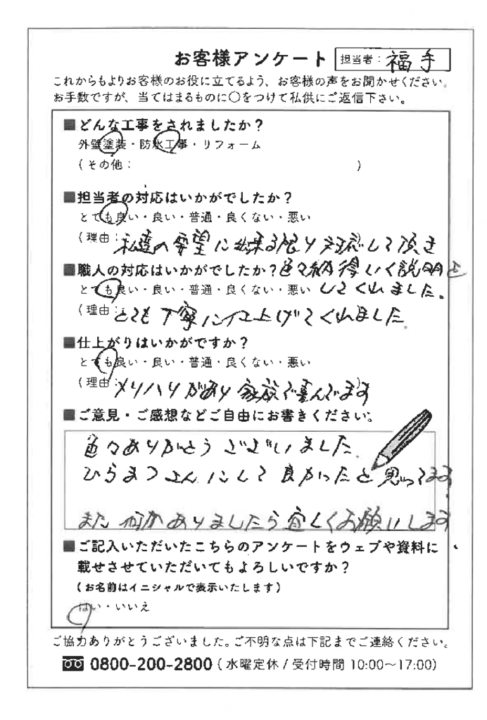 お客様アンケート 担当者: 福手
これからもよりお客様のお役に立てるよう、お客様の声をお聞かせください。
お手数ですが、当てはまるものに○をつけて私供にご返信下さい。
■どんな工事をされましたか?
外壁塗装・防水工事・リフォーム
(その他: )
■担当者の対応はいかがでしたか?
とても良い・良い・普通・良くない・悪い
(理由: 私達の要望に出来る限り対応して頂き
■職人の対応はいかがでしたか? 色々納得いく説明を
とても良い・良い・普通・良くない・悪い してくれました。
(理由: とても丁寧に仕上げてくれました。
■仕上がりはいかがですか?
とても良い・良い・普通・良くない・悪い
(理由: メリハリがあり家族で喜んでます
■ご意見・ご感想などご自由にお書きください。
色々ありがとうございました。
ひらまつさんにして良かったと思ってます
また何かありましたら宜しくお願いします
■ご記入いただいたこちらのアンケートをウェブや資料に
載せさせていただいてもよろしいですか?
(お名前はイニシャルで表示いたします)
はい・いいえ
ご協力ありがとうございました。ご不明な点は下記までご連絡ください。
0800-200-2800(水曜定休/受付時間 10:00〜17:00)